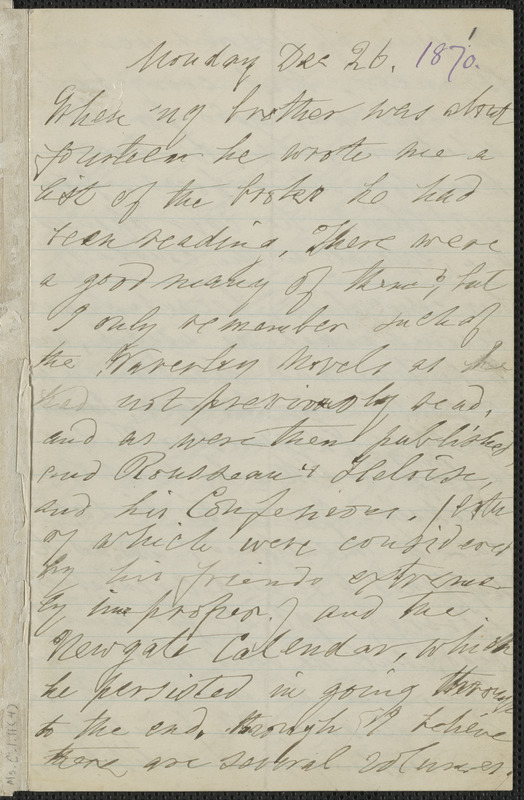 Monday Dec 26. 1870.
When my brother was about
fourteen he wrote me a
list of the books he had
been reading. There were
a good many of them; but
I only remember such of
the Waverley Novels as he
had not previously read,
and as were then published,
and Rousseau's Heloise,
and his Confessions. (
of which were considered
by his friends extreme-
ly improper.) and the
Newgate Calendar, which
he persisted in going through
to the end, though I believe
there are several volumes.
Ms. C.1.11(4)